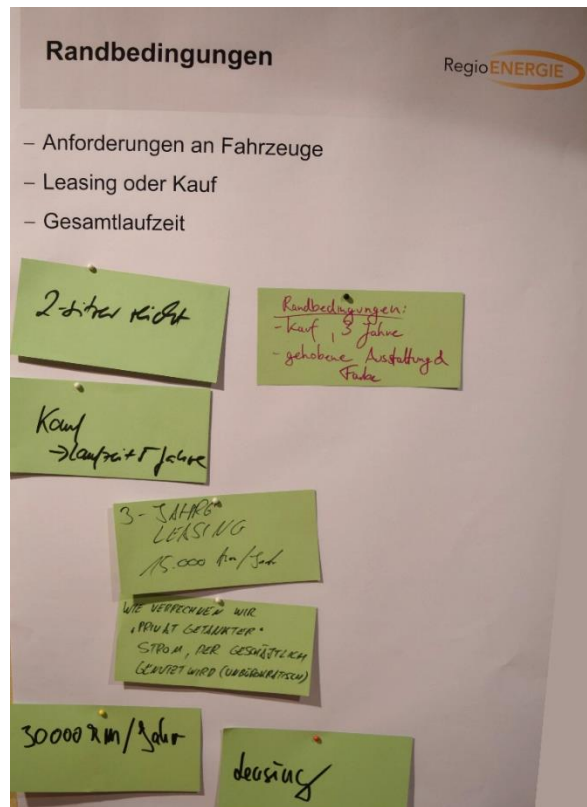 Randbedingungen
RegioENERGIE
– Anforderungen an Fahrzeuge
– Leasing oder Kauf
– Gesamtlaufzeit
2-sitzer reicht
Randbedingungen:
- Kauf, 3 Jahre
- gehobene Ausstattung &
Farbe
Kauf
→ Laufzeit 5 Jahre
3-JAHRE
LEASING
15.000 km/Jahr
WIE VERRECHNEN WIR
"PRIVAT GETANKTER"
STROM, DER GESCHÄFTLICH
GENUTZT WIRD (UNBÜROKRATISCH)
30000 km/Jahr
Leasing